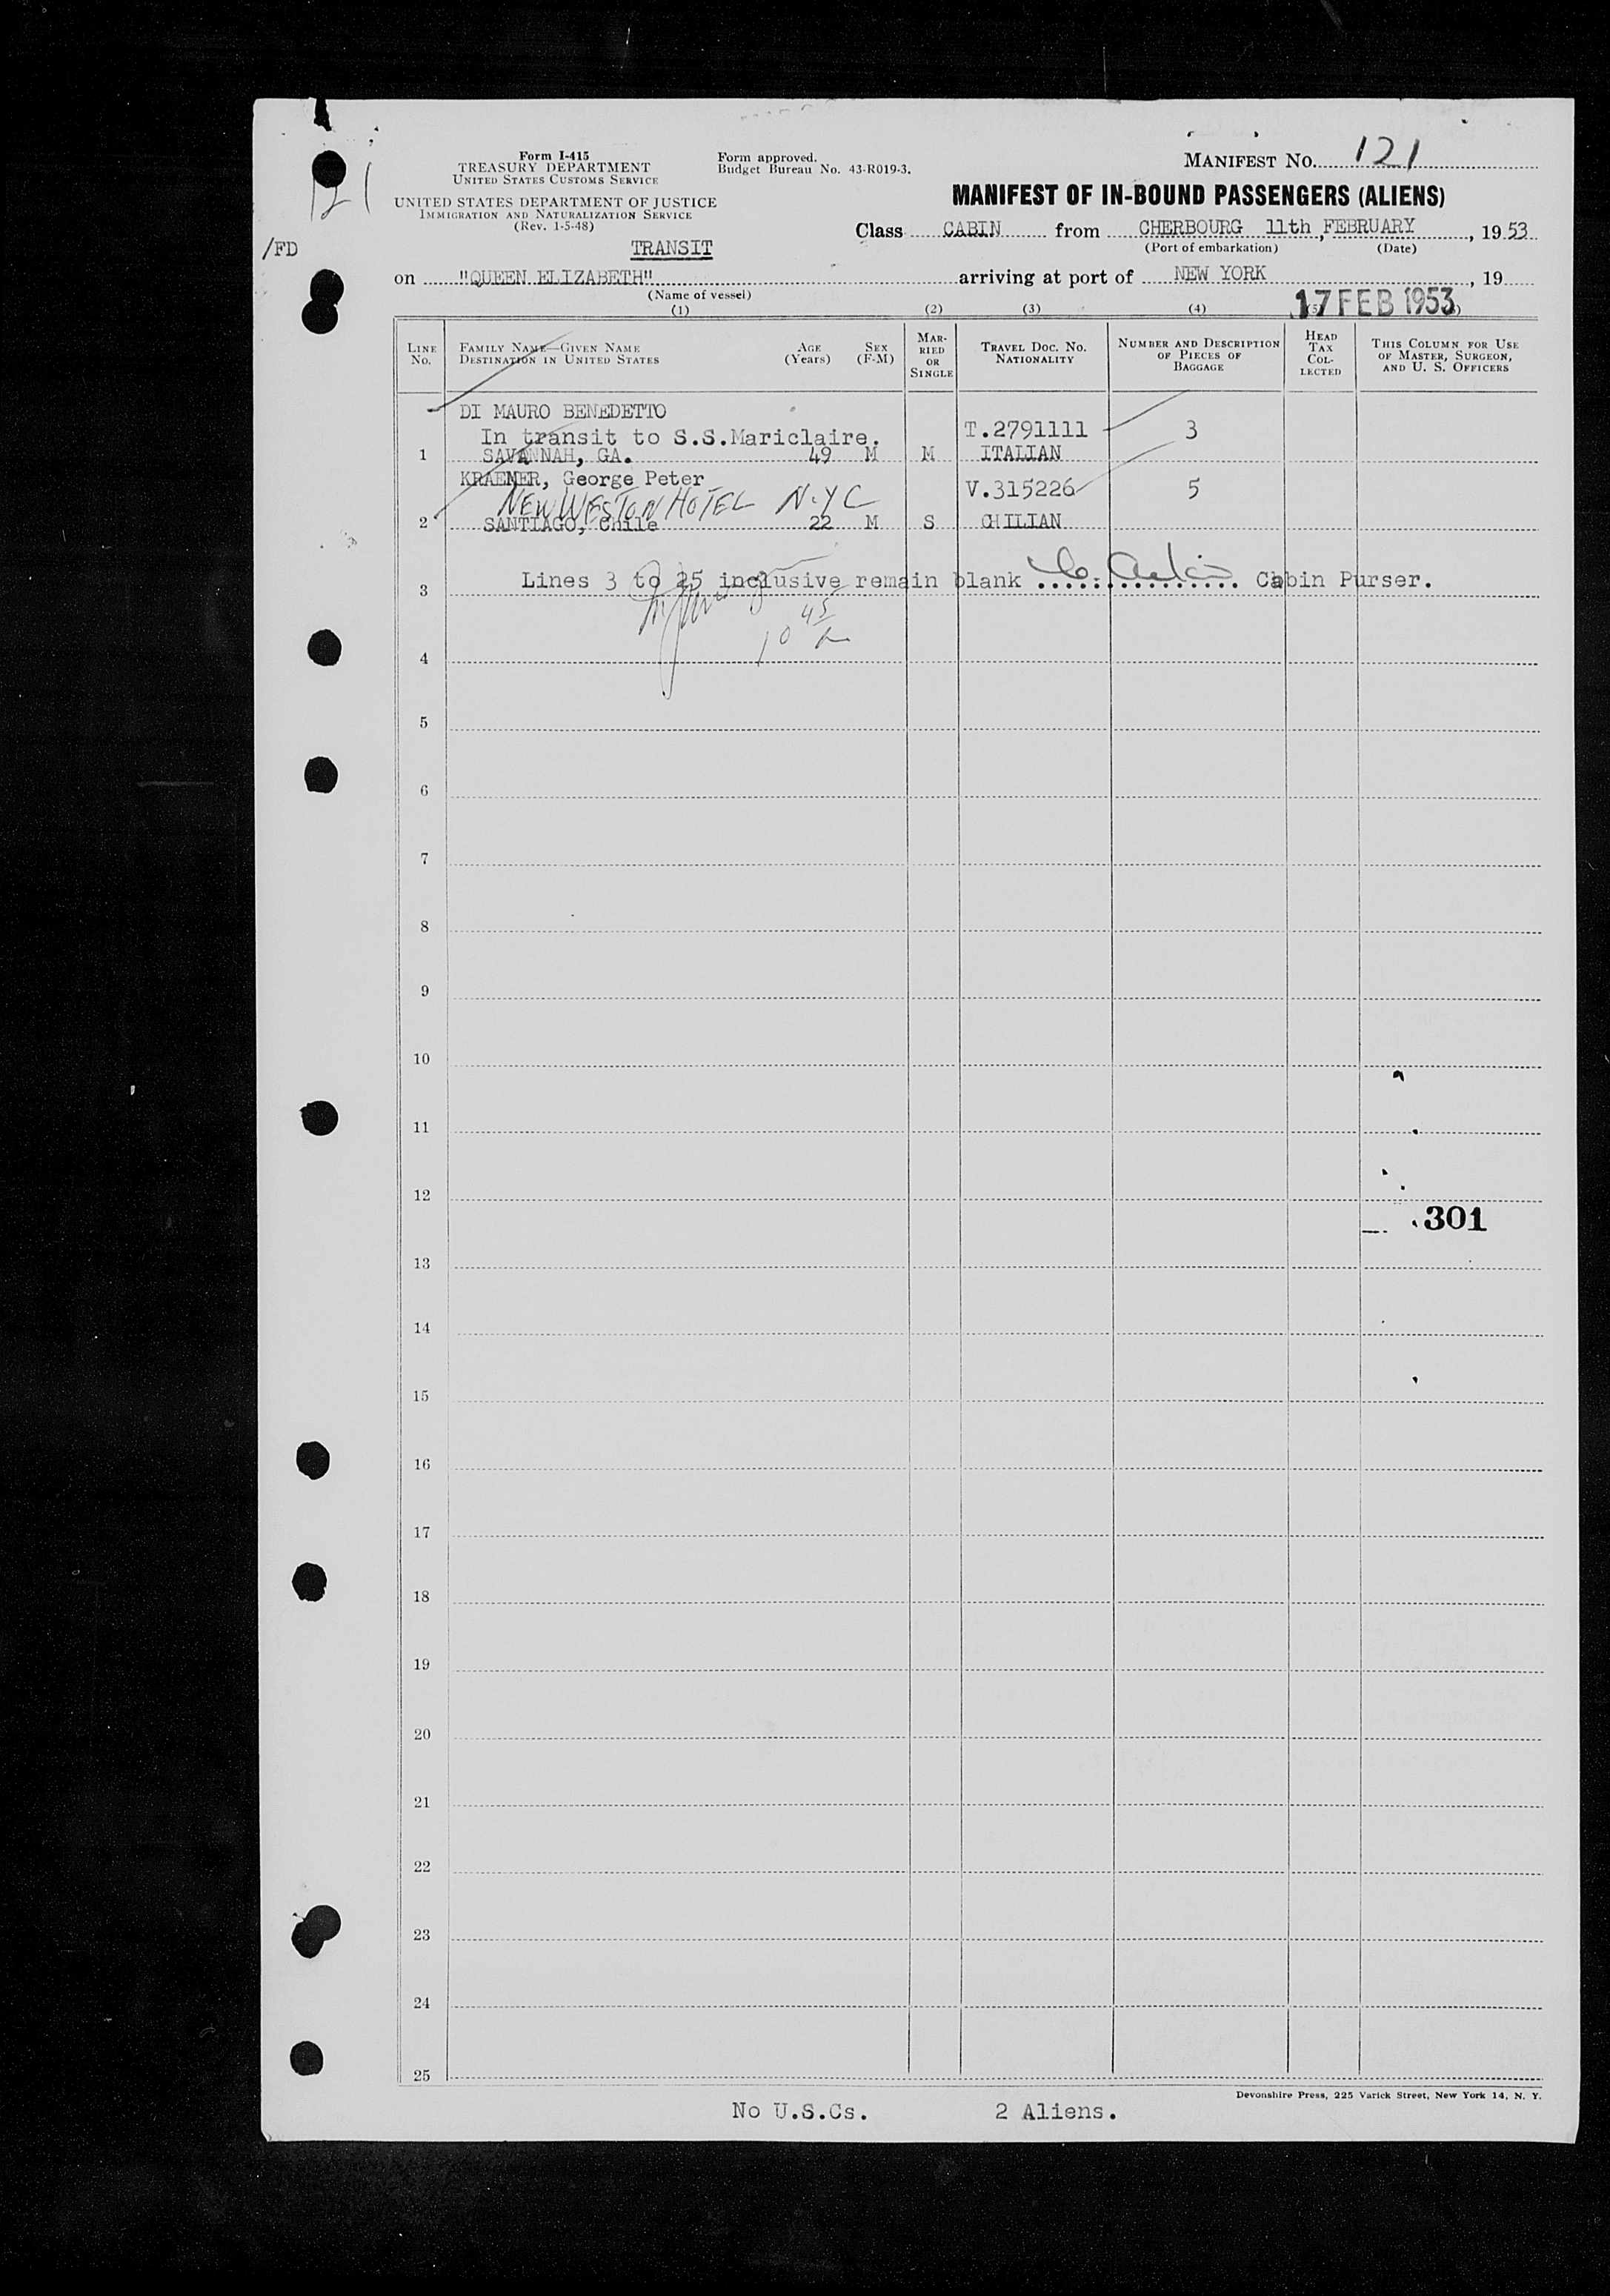 Form I-415
TREASURY DEPARTMENT
UNITED STATES CUSTOMS SERVICE
UNITED STATES DEPARTMENT OF JUSTICE
IMMIGRATION AND NATURALIZATION SERVICE
(Rev. 1-5-48)
Form approved.
Budget Bureau No. 43-R019-3.
MANIFEST NO. 121
121
MANIFEST OF IN-BOUND PASSENGERS (ALIENS)
/FD
TRANSIT
Class CABIN from CHERBOURG 11th, FEBRUARY, 1953
(Port of embarkation) (Date)
on "QUEEN ELIZABETH" arriving at port of NEW YORK, 19
(Name of vessel)
17 FEB 1953
(1) (2) (3) (4)
LINE NO. FAMILY NAME—GIVEN NAME DESTINATION IN UNITED STATES AGE (Years) SEX (F-M) MARRIED OR SINGLE TRAVEL DOC. NO. NATIONALITY NUMBER AND DESCRIPTION OF PIECES OF BAGGAGE HEAD TAX COLLECTED THIS COLUMN FOR USE OF MASTER, SURGEON, AND U. S. OFFICERS
DI MAURO BENEDETTO
In transit to S.S.Mariclaire. T.2791111 3
1 SAVANNAH, GA. 49 M M ITALIAN
KRAEMER, George Peter V.315226 5
NEW WESTON HOTEL N.Y C
2 SANTIAGO, Chile 22 M S CHILIAN
3 Lines 3 to 25 inclusive remain blank ................ Cabin Purser.
10 45
4
5
6
7
8
9
10
11
12
301
13
14
15
16
17
18
19
20
21
22
23
24
25
Devonshire Press, 225 Varick Street, New York 14, N. Y.
No U.S.Cs. 2 Aliens.